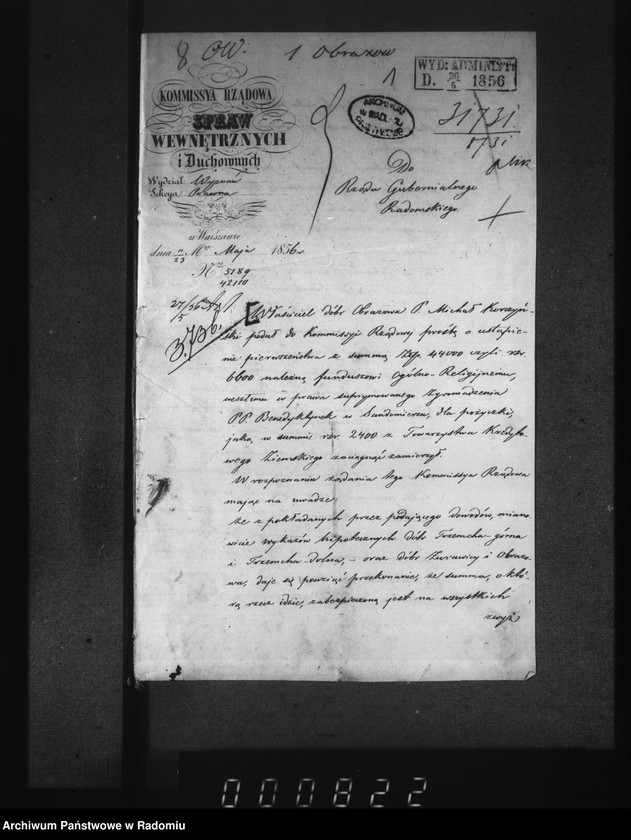 8 OW: 1 Obrazow
1
WYD: ADMINIYT:
D. 26/5 1856
31731
8731
ARCHIWUM
KOMMISSYA RZĄDOWA
SPRAW
WEWNĘTRZNYCH
i Duchownych
Wydział Wyznań
Sekcya Prawna
w Warszawie
dnia 11/23 Mca Maja 1856 r.
No 5189
42110
27/5 56
3.736.
Do
Rządu Gubernialnego
Radomskiego.
Właściciel dóbr Obrazowa P. Michał Karczyń-
ski podał do Kommissyi Rządowej prośbę o ustąpie-
nie pierwszeństwa z summą Złp. 44000 czyli rsr.
6600 należną funduszowi Ogólno-Religijnemu,
weszłemu w prawa supprymowanego Zgromadzenia
PP. Benedyktynek w Sandomierzu, dla pożyczki,
jaką w summie rsr. 2400 z Towarzystwa Kredyto-
wego Ziemskiego zaciągnąć zamierzył.
W rozpoznaniu żądania tego Kommissya Rządowa
mając na uwadze:
że z pokładanych przez podającego dowodów, miano-
wicie wykazów hipotecznych dóbr Trzemcha-górna
i Trzemcha-dolna, – oraz dóbr Żurawicy i Obrazo-
wa, daje się powziąć przekonanie, że summa, o któ-
rą rzecz idzie, zabezpieczoną jest na wszystkich
000822
Archiwum Państwowe w Radomiu